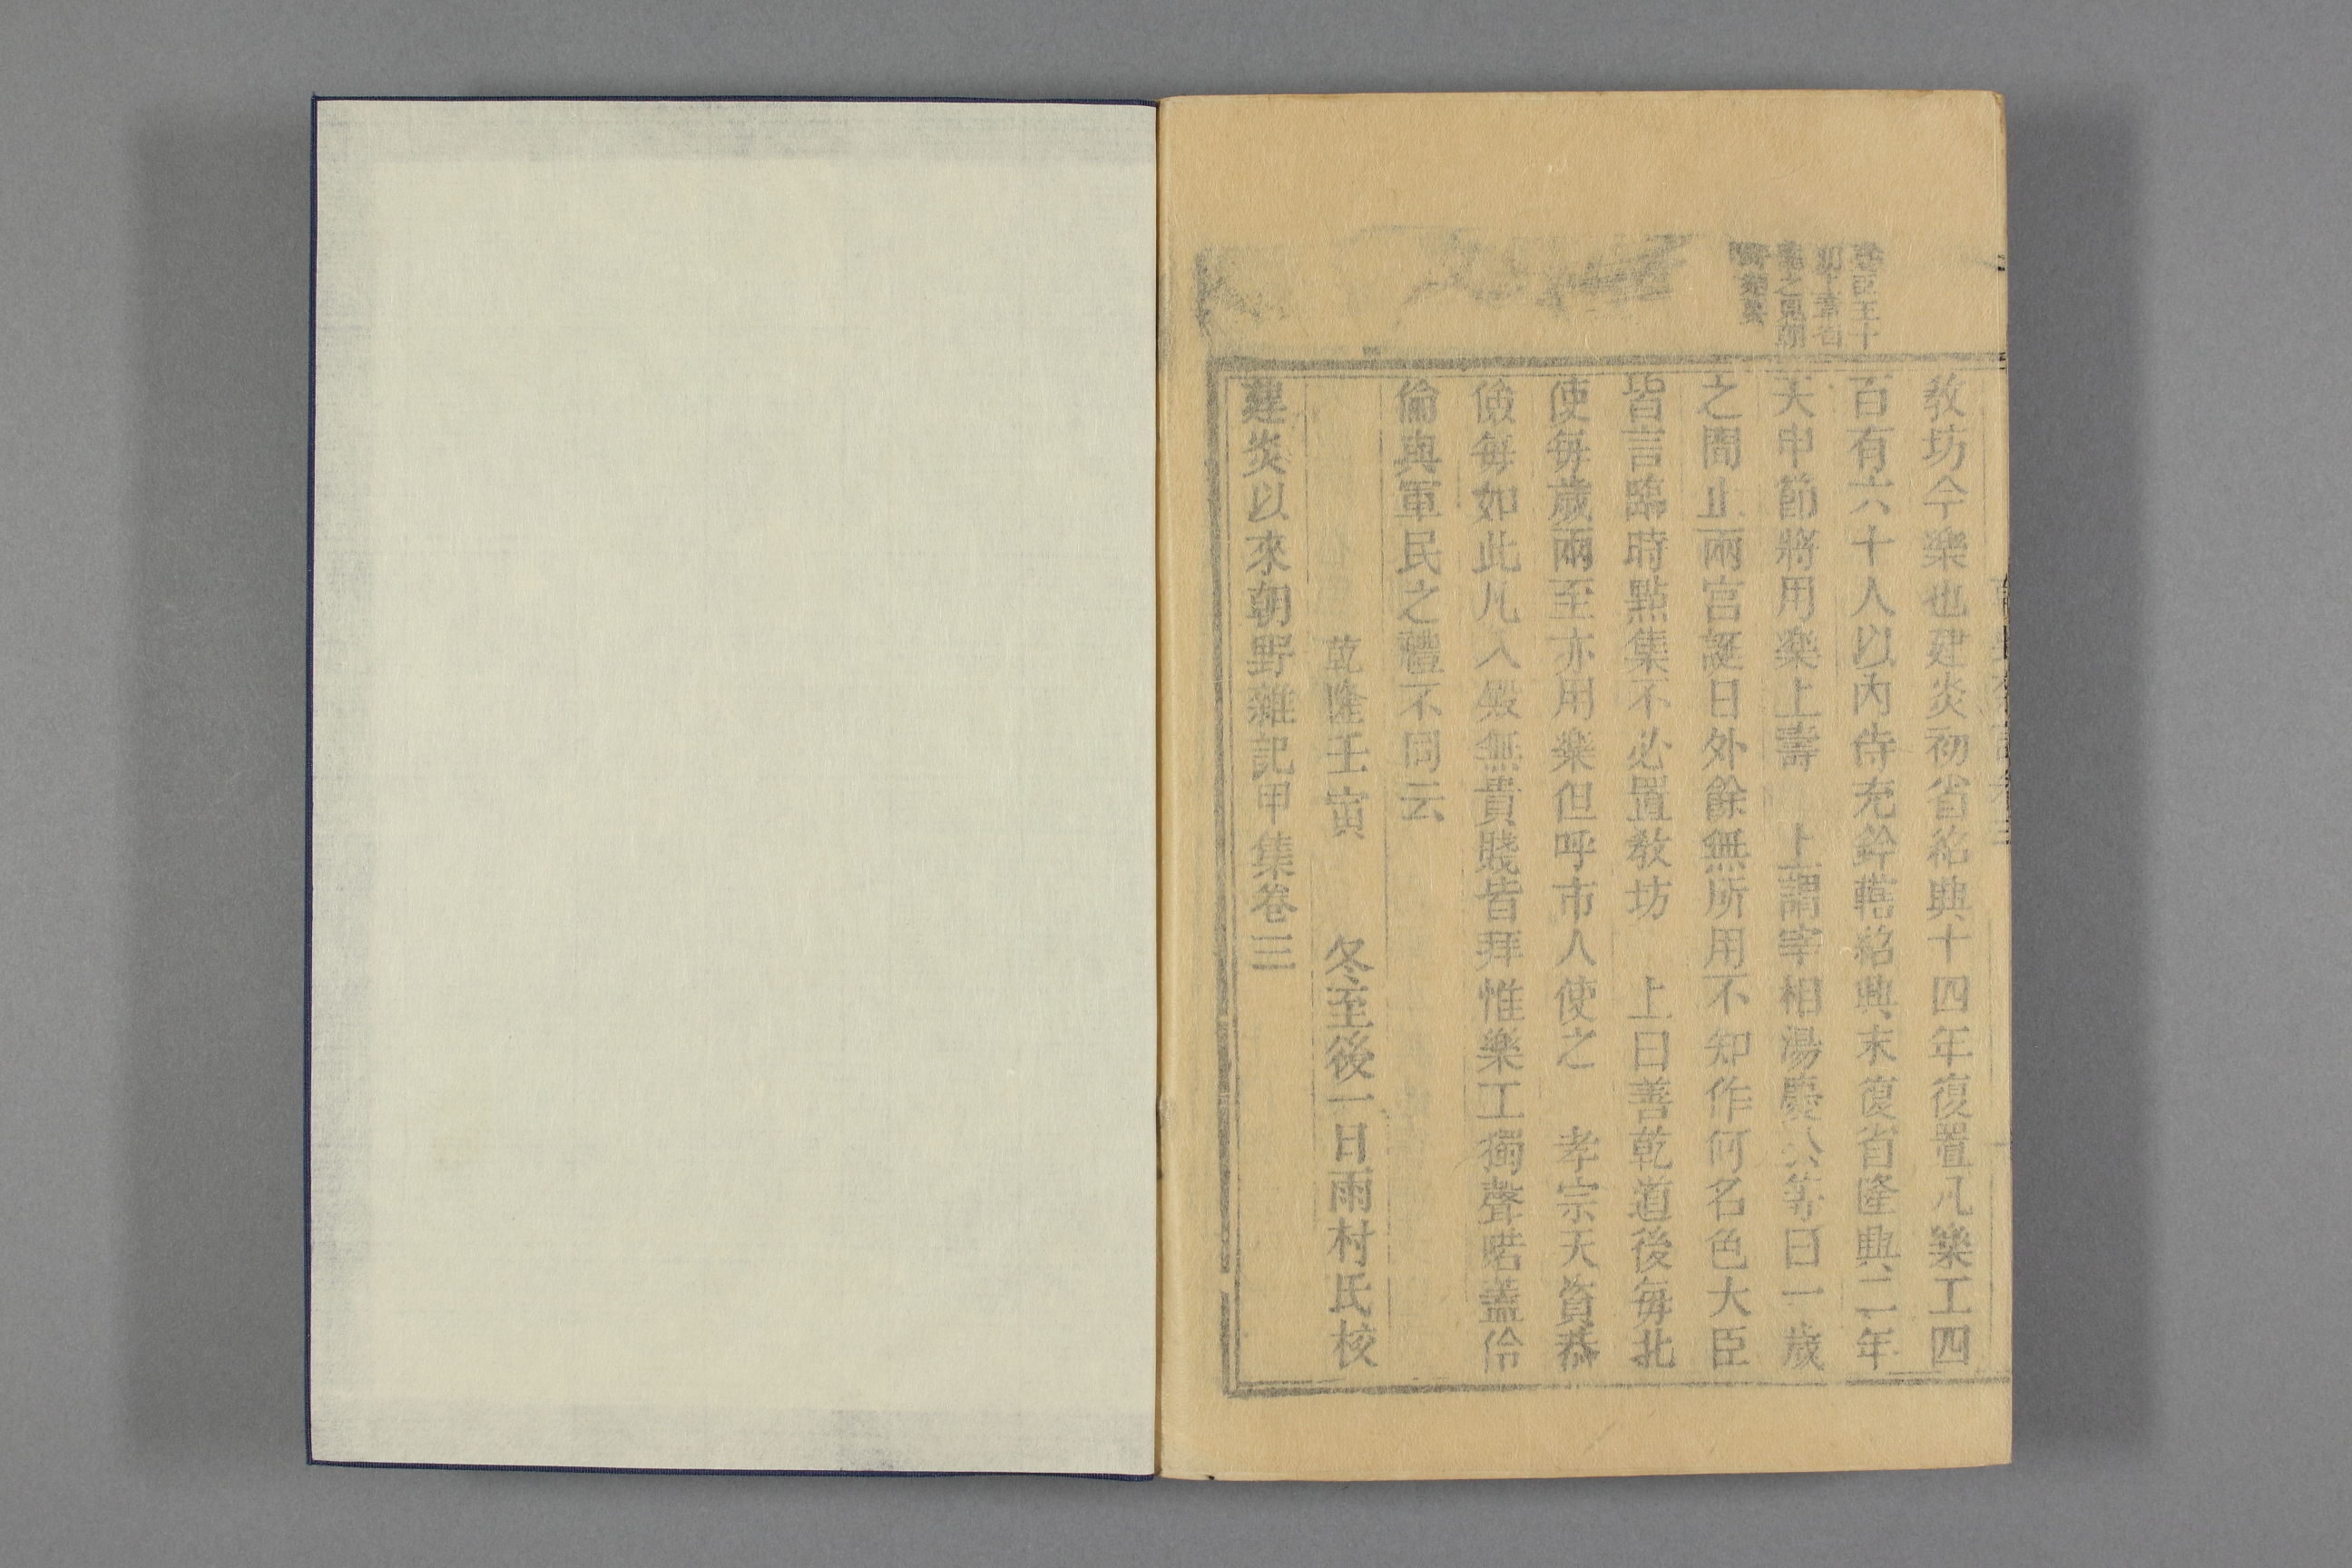 教坊今樂也建炎初省紹興十四年復置凡樂工四
百有六十人以內侍充鈐轄紹興末復省隆興二年
天申節將用樂上壽　上謂宰相湯慶公等曰一歲
之間止兩宮誕日外餘無所用不知作何名色大臣
皆言臨時點集不必置教坊　上曰善乾道後每北
使每歲兩至亦用樂但呼市人使之　孝宗天資恭
儉每如此凡入殿無貴賤皆拜惟樂工獨聲喏蓋伶
倫與軍民之禮不同云
乾隆壬寅　冬至後一日雨村氏校
建炎以來朝野雜記甲集卷三